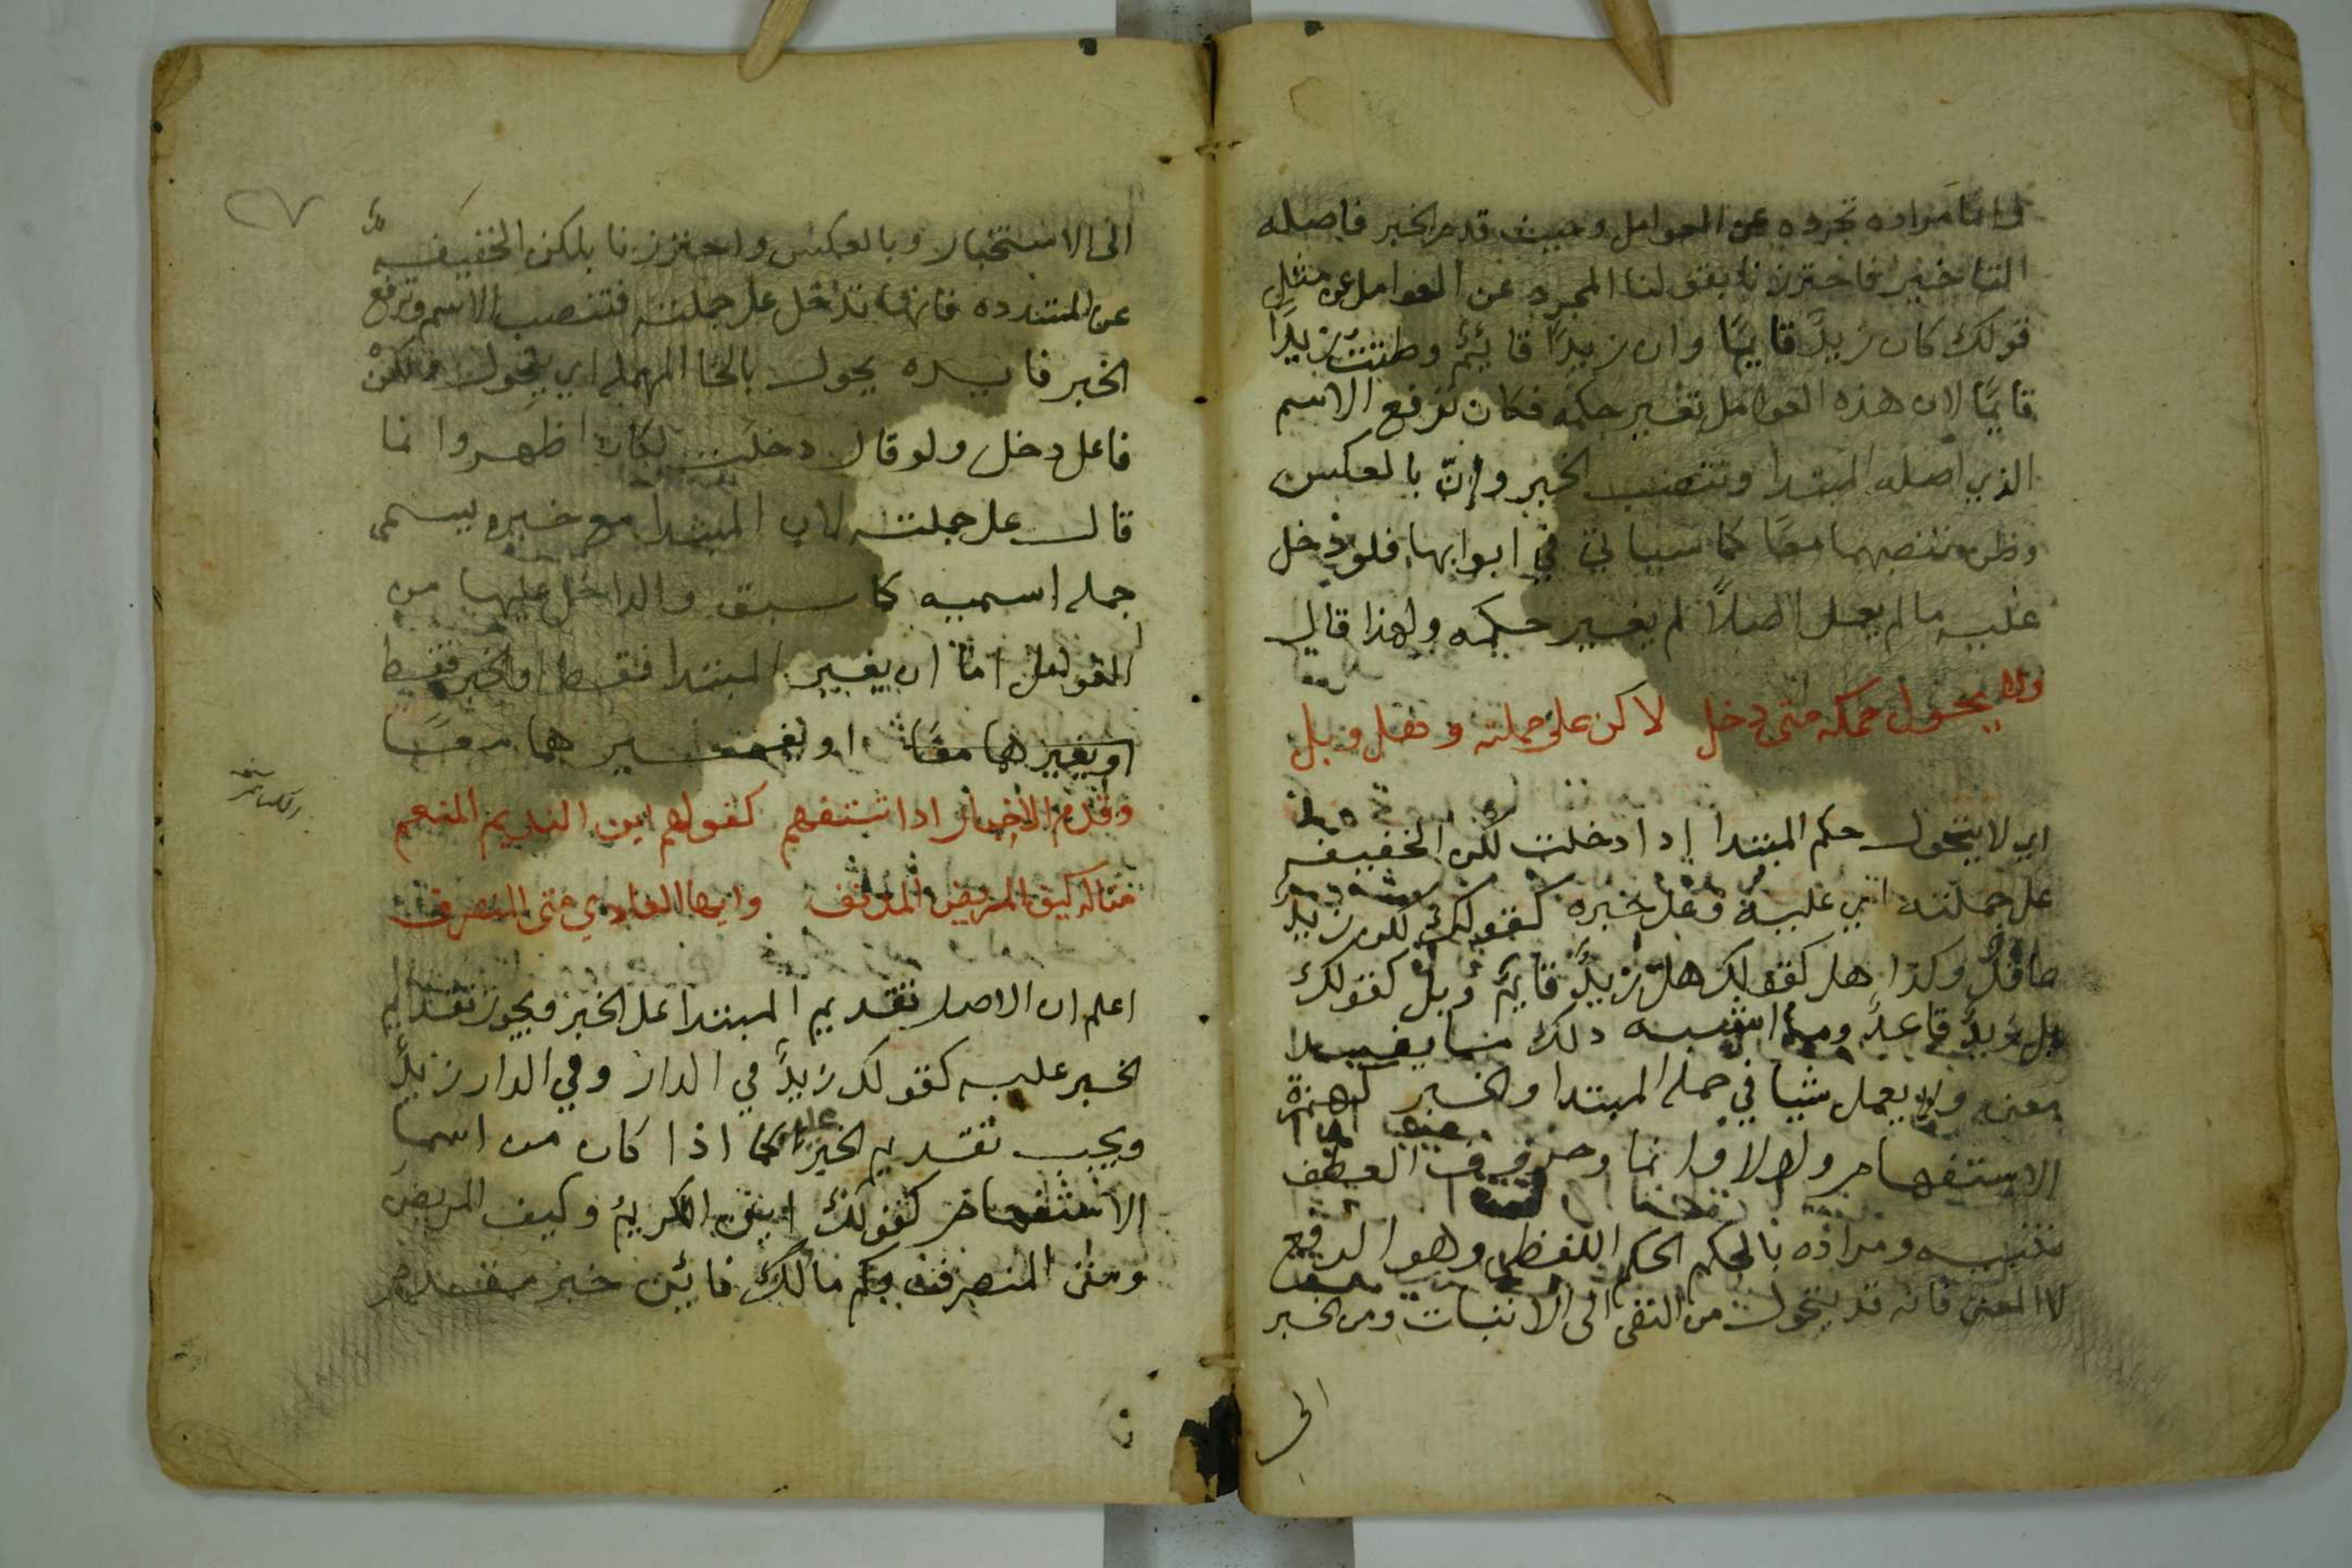 وانما مراده تجرده عن العوامل وحيث قدم الخبر فاصله
التاخير فاحترزنا بقولنا المجرد عن العوامل عن مثل
قولك كان زيدٌ قايمًا وان زيدًا قايمٌ وظننت زيدًا
قايمًا لان هذه العوامل تغير حكمه فكان ترفع الاسم
الذي اصله المبتدا وتنصب الخبر وإنّ بالعكس
وظن تنصبهما معًا كما سياتي في ابوابها فلو دخل
عليه ما لم يعمل اصلاً لم يغير حكمه ولهذا قال
ولا يحول حكمه متى دخل لاكن على جملته وهل وبل
اي لا يتحول حكم المبتدا إدا دخلت لكن الخفيفه
على جملته اي عليه وعلى خبره كقولك لكن زيدٌ
عاقلٌ وكذا هل كقولك هل زيدٌ قايمٌ وبل كقولك
بل زيدٌ قاعدٌ وما اشبه دلك مما يفيد
معنى ولا يعمل شيا في جملة المبتدا والخبر كهمزة
الاستفهام ولولا وانما وحروف العطف
تنبيه ومراده بالحكم الحكم اللفظي وهو الرفع
لا المعنى فانه قد يتحول من النفي الى الاثبات ومن الخبر
الى
الى الاستخبار وبالعكس واحترزنا بلكن الخفيفه
عن المشدده فانها تدخل على جملته فتنصب الاسم وترفع
الخبر فايده يحول بالحا المهمله اي يتحول ولكن
فاعل دخل ولو قال دخلت لكان اظهر وانما
قال على جملته لان المبتدا مع خبره يسمى
جمله اسميه كما سبق والداخل عليها من
العوامل اما ان يغير المبتدا فقط او الخبر فقط
او يغيرهما معًا او يغيرهما معًا
وقدم الاخبار ادا تستفهم كقولهم اين الكريم المنعم
مثاله كيف المريض المدنف وايها الغادي متى المنصرف
اعلم ان الاصل تقديم المبتدا على الخبر ويجوز تقديم
الخبر عليه كقولك زيدٌ في الدار وفي الدار زيدٌ
ويجب تقديم الخبر عليه اذا كان من اسما
الاستفهام كقولك اين الكريمُ وكيف المريضُ
ومتى المنصرف وكم مالك فاين خبر مقدم